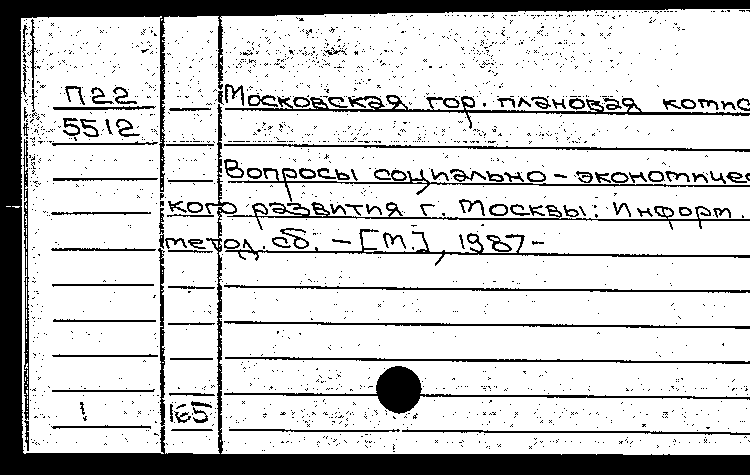 П22 Московская гор. плановая комис
5512
Вопросы социально-экономичес
кого развития г. Москвы: Информ.
метод. сб. – [М.], 1987-
1 165